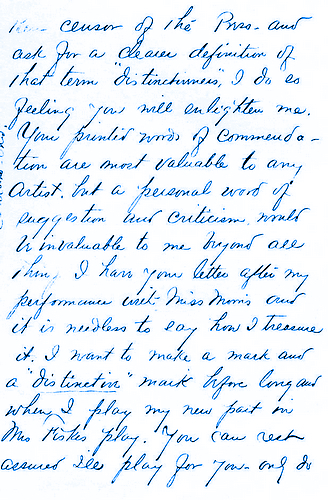 censor of the Press - and
ask for a clearer definition of
that term "distinctiveness", I do so
feeling you will enlighten me.
Your printed words of commenda-
tion are most valuable to any
Artist. but a personal word of
suggestion and criticism, would
be invaluable to me beyond all
things I have your letter after my
performance with Miss Morris and
it is needless to say how I treasure
it. I want to make a mark and
a "distinctive" mark before long and
when I play my new part in
Mrs Fiskes play. You can rest
assured I'll play for you - only do